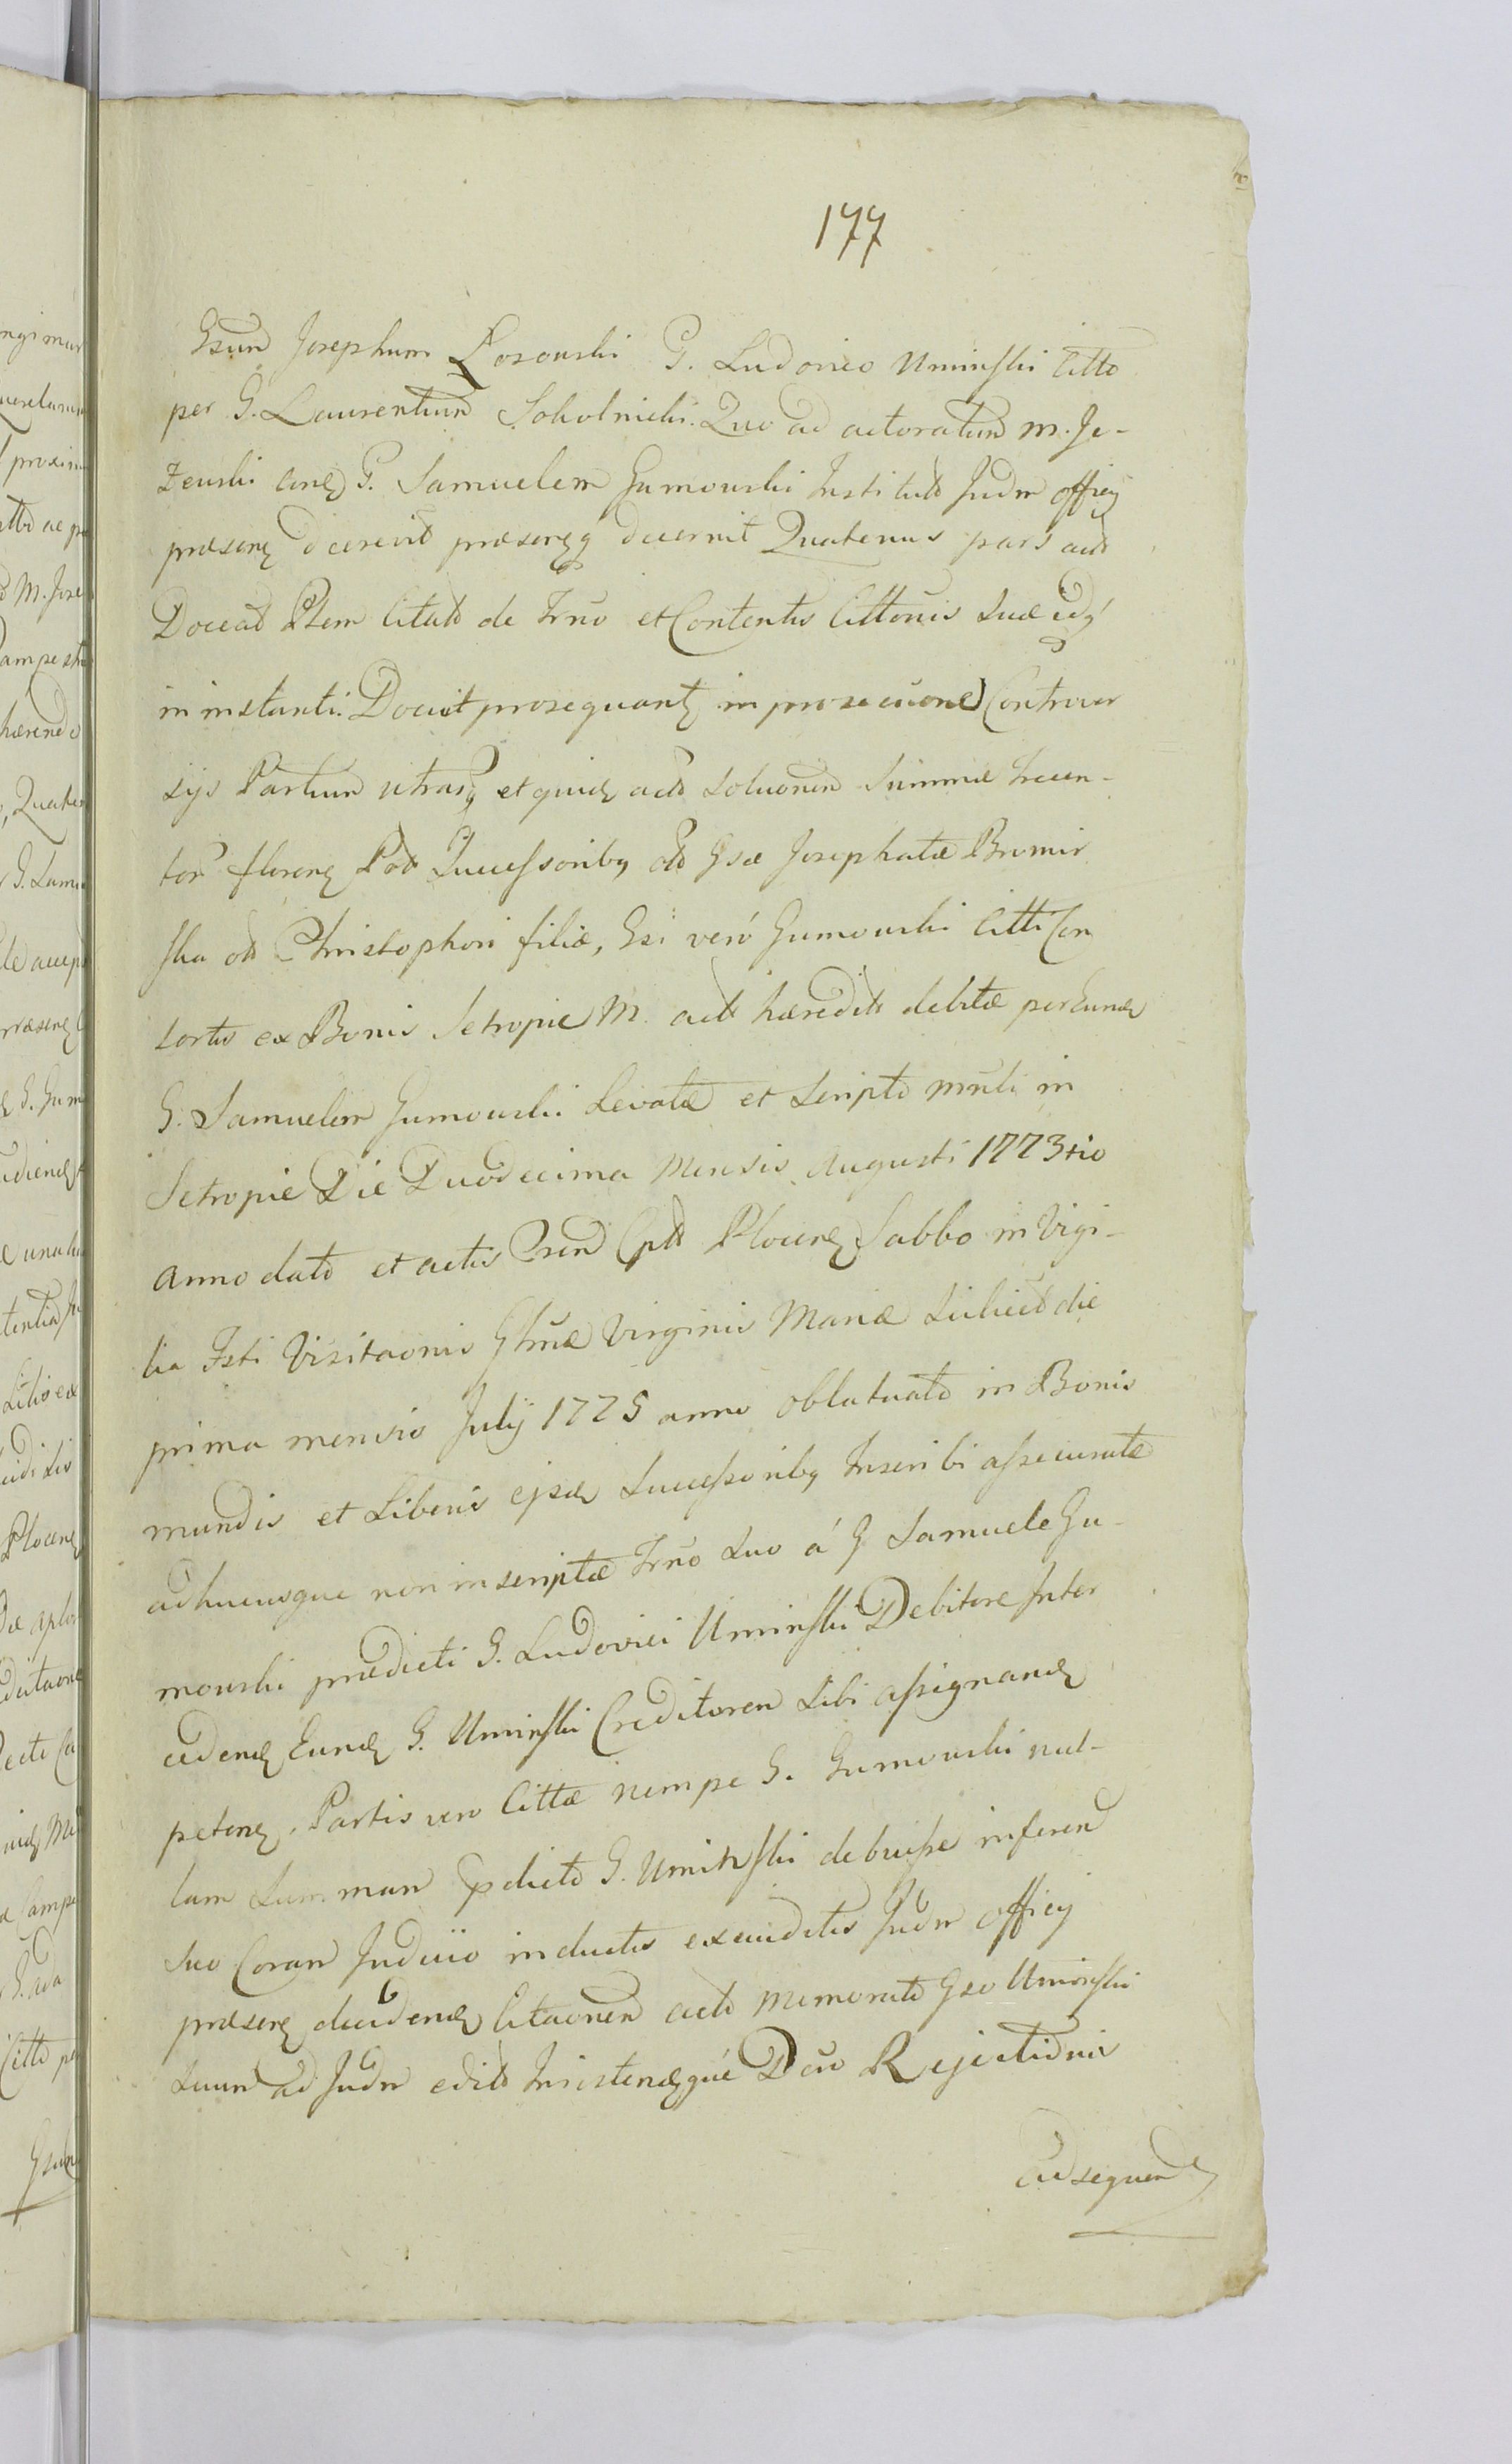 177
Gsum Josephum Losowski G. Ludovico Uminski Citto
per G. Laurentium Sokolnicki. Quo ad actoratum M. Je-
żewski conq G. Samuelem Gumowski Institut Judm officij
præsens decrevit præsensq decernit Quatenus pars act
Doceat Ptem Citat de Trno et Contentis Cittonis suæ idq
in instanti. Docuit prosequanq in prosecuone Controver
sijs Partium utrasq et quidq act solvonem summæ trecen-
tor floren Pol Successoribq olo Gsæ Josephatæ Bromir
ska olo Christophori filiæ, Gsi veró Gumowski Citti Con
sortis ex Bonis Setropie M. act hæredit debitæ per Eundq
G. Samuelem Gumowski Levatæ et scripto mnli in
Setropie Die Duodecima Mensis Augusti 1773tio
Anno dato et actis Cptt Plocen Sabbo in Vigi-
lia Fsti Visitaonis Gsmæ Virginis Mariæ Scilicet die
prima mensis July 1775 anno oblatuato in Bonis
mundis et Liberis ejsdq Successoribq Inscribi assecuratæ
adhucusque non inscriptæ Trno suo á G Samuele Gu-
mowski prædicti G. Ludovici Uminski Debitore Inter
cedenq Eundq G. Uminski Creditorem sibi assignandq
peten. Partis vero Cittæ nempe G. Gumowski nul-
lam summam pdicto G. Uminski debuisse inferen
suo Coram Judicio inductis exauditis Judm officij
præsens decidendq Citaonem act memorato Gso Uminski
suum ad Judm edit Insistendqué Dcto Rejectionis
adsequend